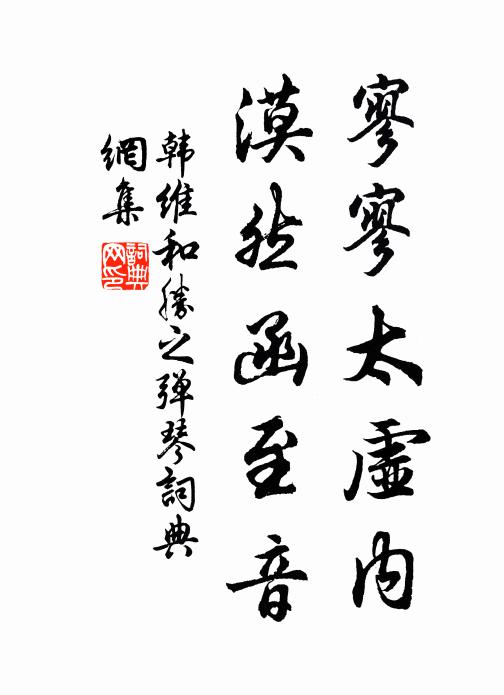 寥寥太虛内
漠然函至音
韩维和勝之弹琴詞典
網集
詞典
网印